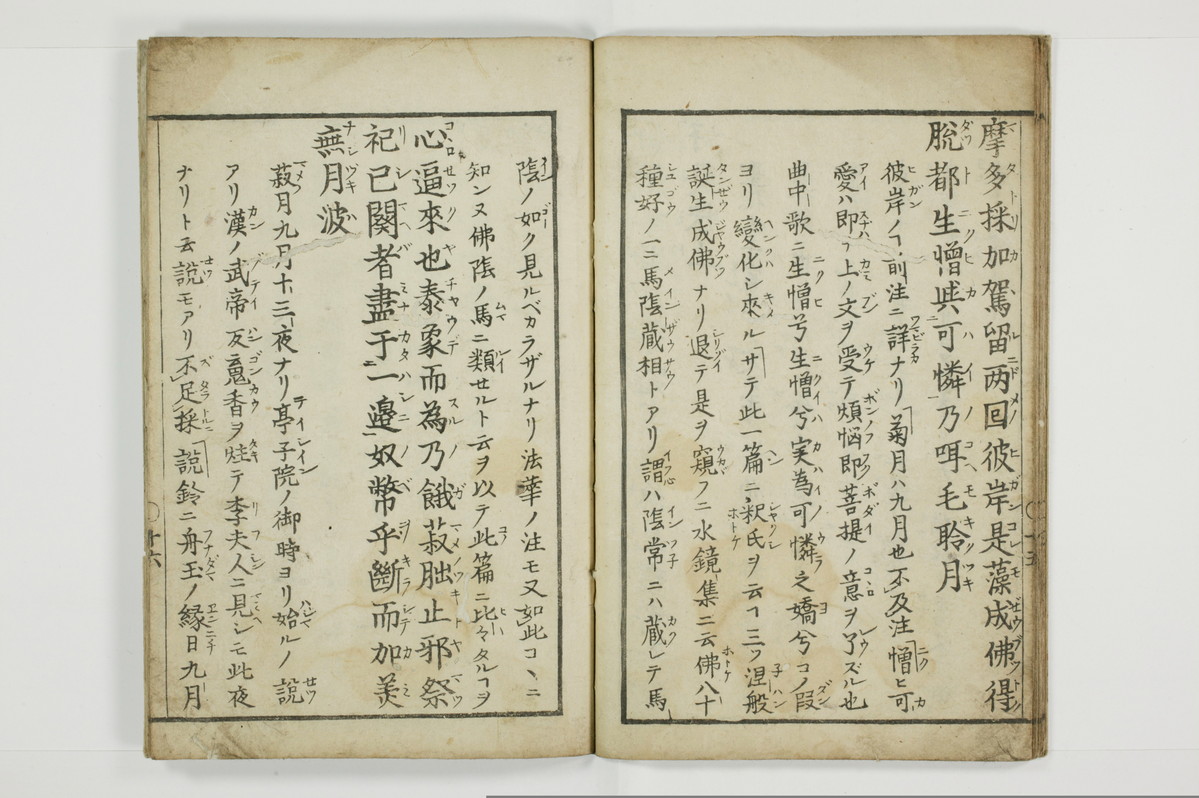 摩多採加駕留两回彼岸是藻成佛得
脱都生憎哉可憐乃咡毛聆月
彼岸ノヿ前注ニ詳ナリ菊月ハ九月也不及注憎ヒ可
愛ハ即フ上ノ文ヲ受テ煩悩即菩提ノ意ヲ了ズル也
曲中歌ニ生憎兮生憎兮実為可憐之嬌兮コノ段
ヨリ變化シ來ルサテ此一篇ニ釈氏ヲ云ヿ三ツ涅般
誕生成佛ナリ退テ是ヲ窺フニ水鏡集ニ云佛八十
種好ノ一ニ馬陰蔵相トアリ謂ハ陰常ニハ蔵レテ馬
陰ノ如ク見ルベカラザルナリ法華ノ注モ又如此コヽニ
知ンヌ佛陰ノ馬ニ類セルト云ヲ以テ此篇ニ比々タルヿヲ
心逼來也泰象而為乃餓菽朏止邪祭
祀已闋者盡于一邉奴幣乎斷而加美
無月波
菽月九月十三夜ナリ亭子院ノ御時ヨリ始ルノ説
アリ漢ノ武帝反魂香ヲ炷テ李夫人ニ見シモ此夜
ナリト云説モアリ不足採説鈴ニ舟玉ノ縁日九月
十五
十六